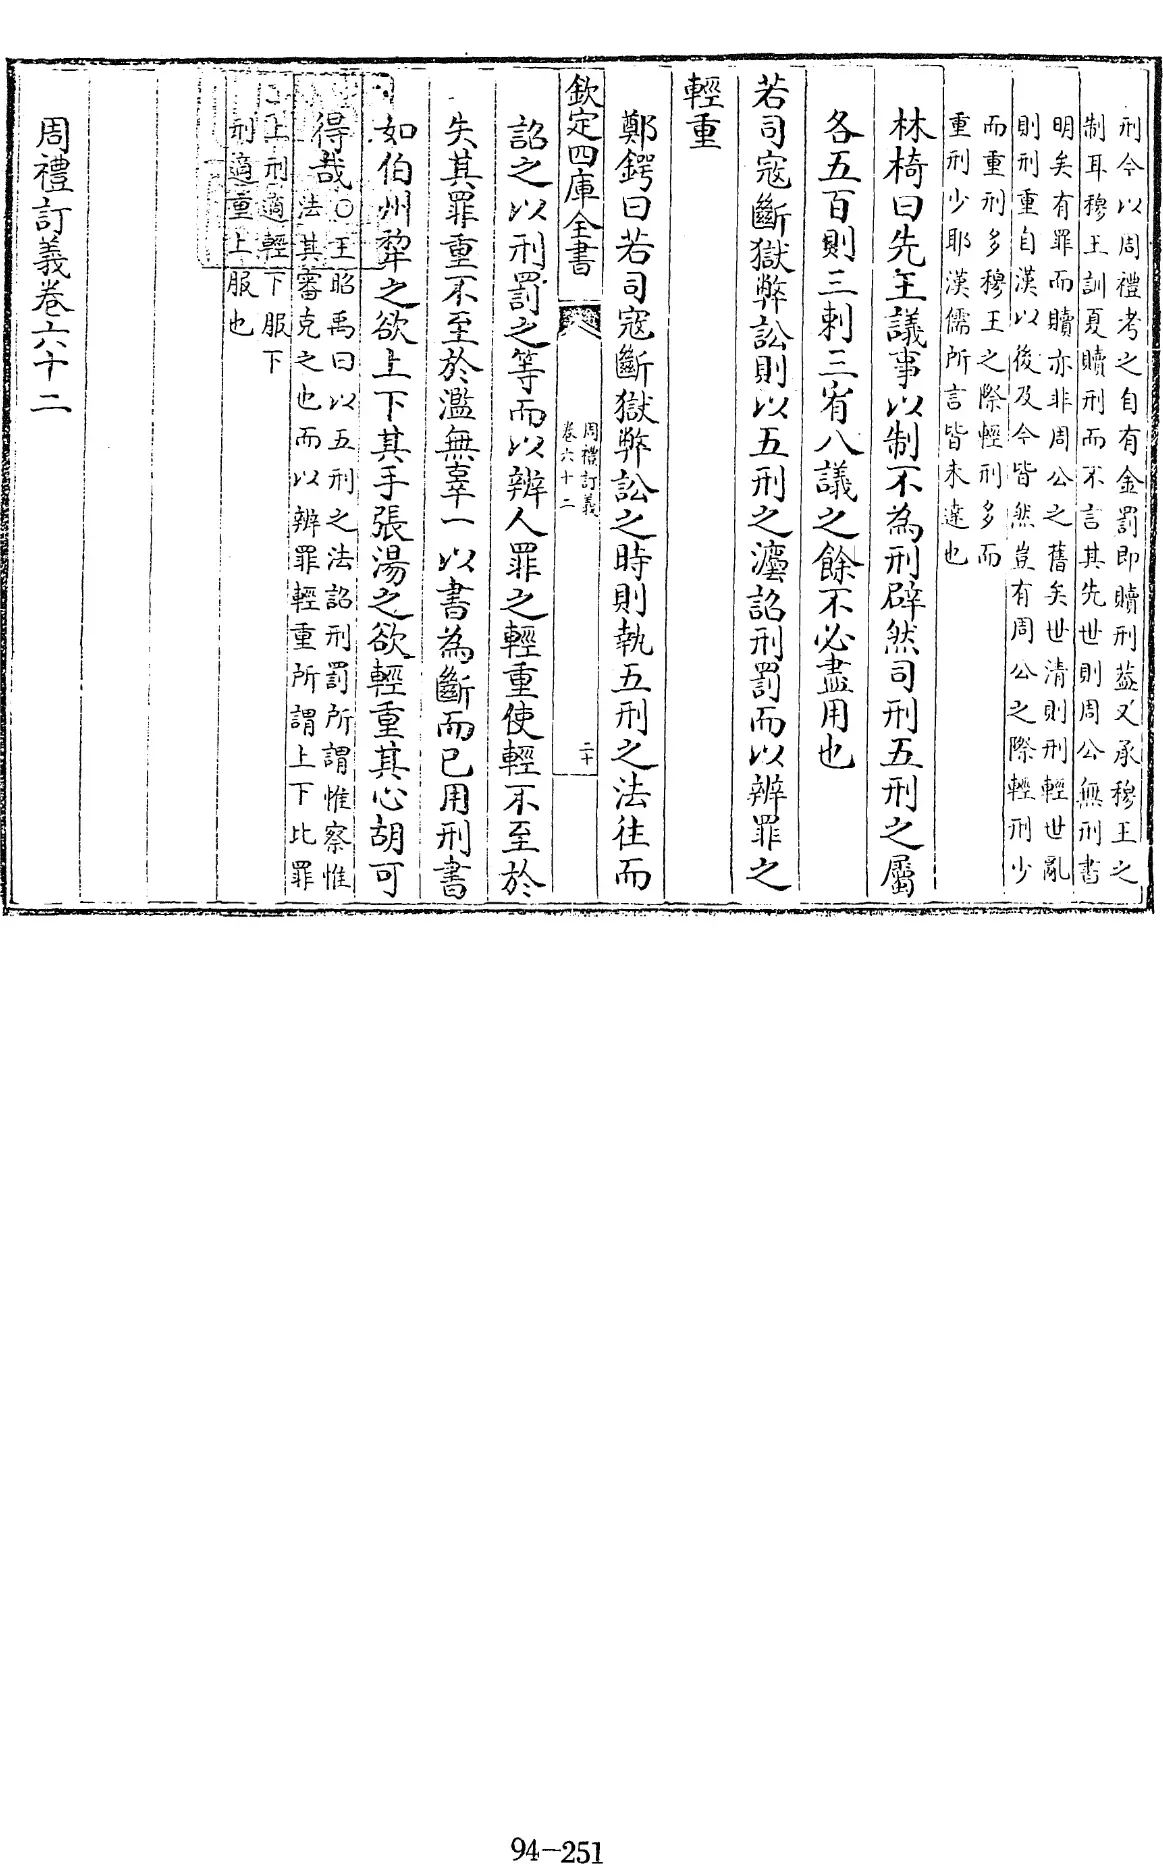 刑今以周禮考之自有金罰即贖刑葢又承穆王之
制耳穆王訓夏贖刑而不言其先世則周公無刑書
明矣有罪而贖亦非周公之舊矣世清則刑輕世亂
則刑重自漢以後及今皆然豈有周公之際輕刑少
而重刑多穆王之際輕刑多而
重刑少耶漢儒所言皆未達也
林椅曰先王議事以制不為刑辟然司刑五刑之屬
各五百則三刺三宥八議之餘不必盡用也
若司寇斷獄弊訟則以五刑之灋詔刑罰而以辨罪之
輕重
鄭鍔曰若司寇斷獄弊訟之時則執五刑之法往而
欽定四庫全書
周禮訂義
卷六十二
二十
詔之以刑罰之等而以辨人罪之輕重使輕不至於
失其罪重不至於濫無辜一以書為斷而已用刑書
如伯州犂之欲上下其手張湯之欲輕重其心胡可
得哉○王昭禹曰以五刑之法詔刑罰所謂惟察惟
法其審克之也而以辨罪輕重所謂上下比罪
上刑適輕下服下
刑適重上服也
周禮訂義卷六十二
94-251